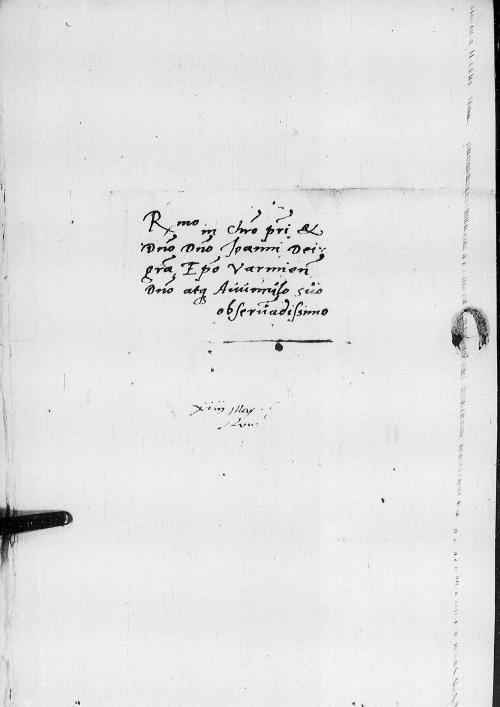 Rmo in Chro pri &
Dno Dno Joanni Dei
gra Epo Varmien
Dno atq Auunculo suo
obseruadissimo
xiiij May